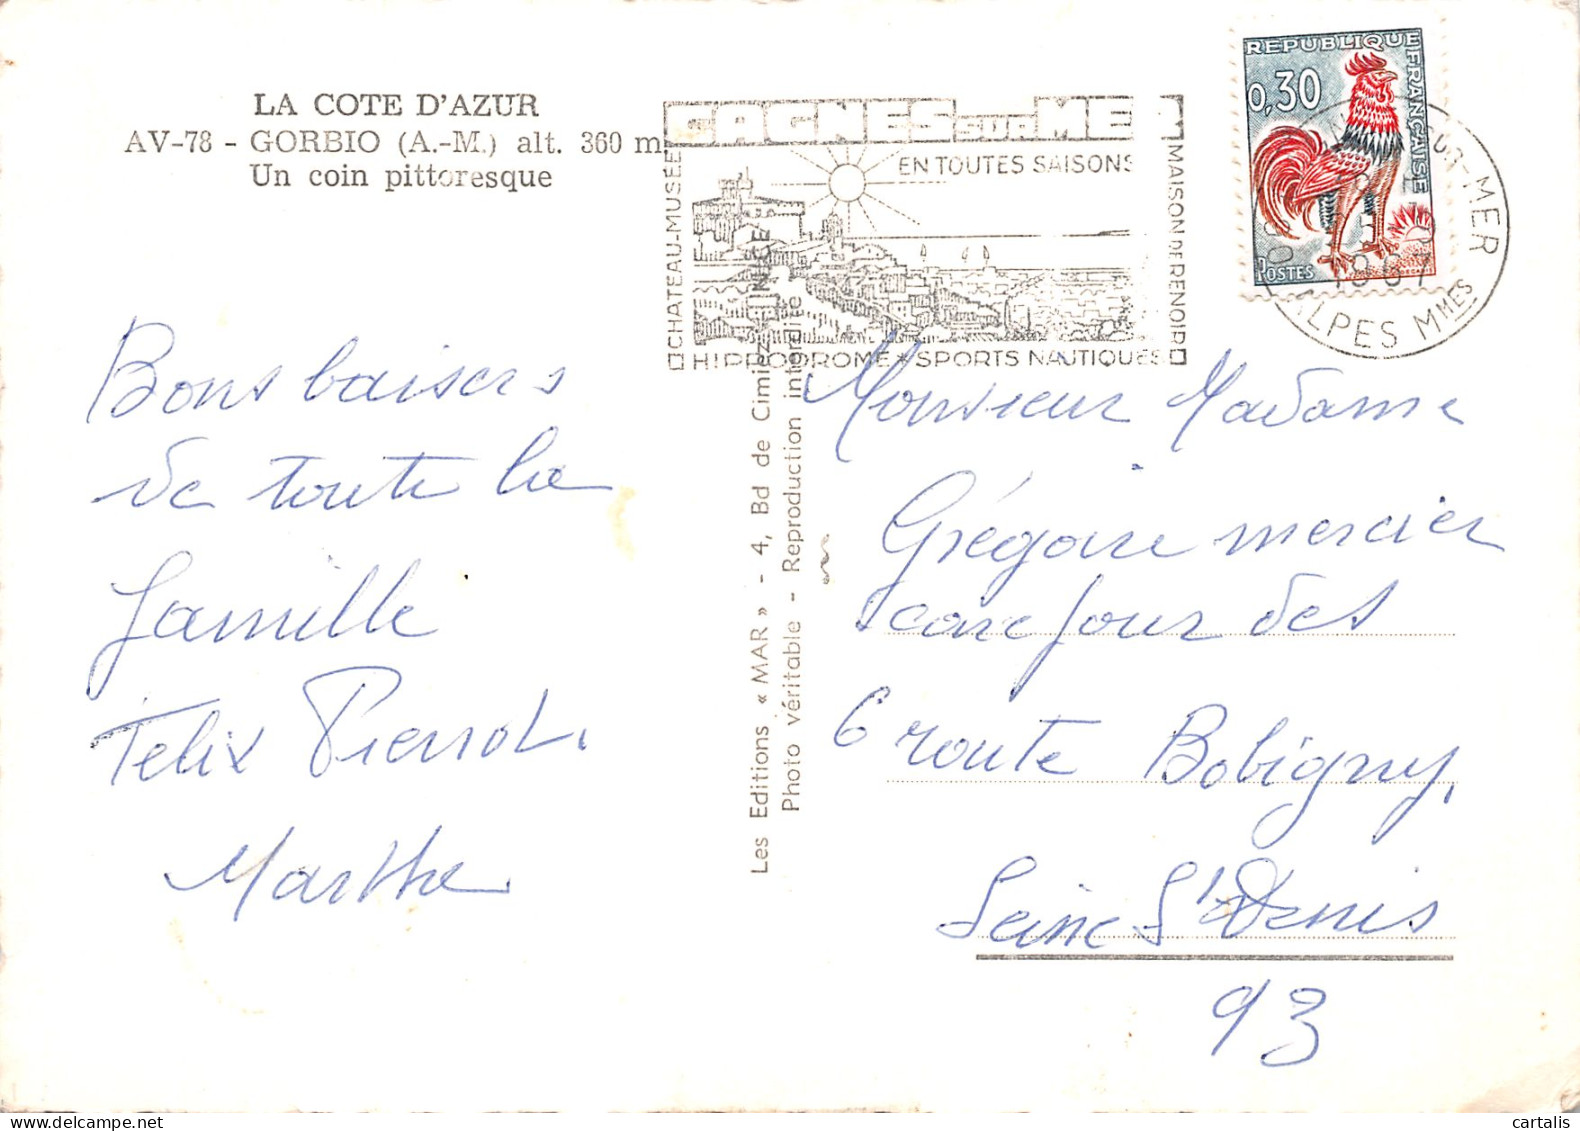 LA COTE D'AZUR
AV-78 - GORBIO (A.-M.) alt. 360 m.
Un coin pittoresque
CAGNES SUR MER
EN TOUTES SAISONS
CHATEAU-MUSÉE
MAISON DE RENOIR
HIPPODROME * SPORTS NAUTIQUES
REPUBLIQUE FRANÇAISE
0,30
POSTES
SUR-MER
ALPES MMES
Bons baisers
de toute la
famille
Felix Pierrot.
Marthe
Les Editions « MAR » - 4, Bd de Cimiez - NICE
Photo véritable - Reproduction interdite
Monsieur Madame
Grégoire mercier
carrefour des
6 route Bobigny,
Seine St Denis
93
cartalis